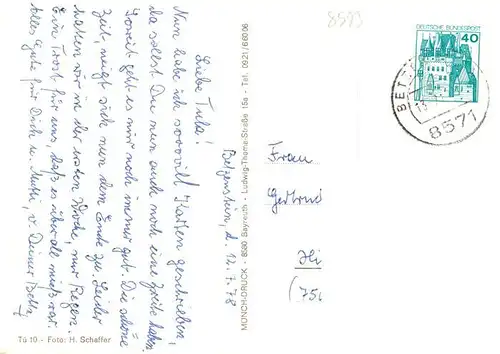 8593
DEUTSCHE BUNDESPOST
40
BET
13.
8571
Betzenstein, d. 12.7.78
Liebe Tula!
Nun habe ich sooovill Karten geschrieben,
da sollst Du nun auch noch eine Zeile haben.
Soweit geht es mir noch immer gut. Die schöne
Zeit, neigt sich nun dem Ende zu. Leider
hatten wir in der ersten Woche, nur Regen.
Ein Trost für uns, daß es überall mieß war.
Alles Gute für Dich u. Mutti, v. Deiner Betty
Frau
Gertrud
(75
Tü 10 - Foto: H. Schaffer
MÜNCH-DRUCK - 8580 Bayreuth - Ludwig-Thoma-Straße 15a - Tel. 0921/66006